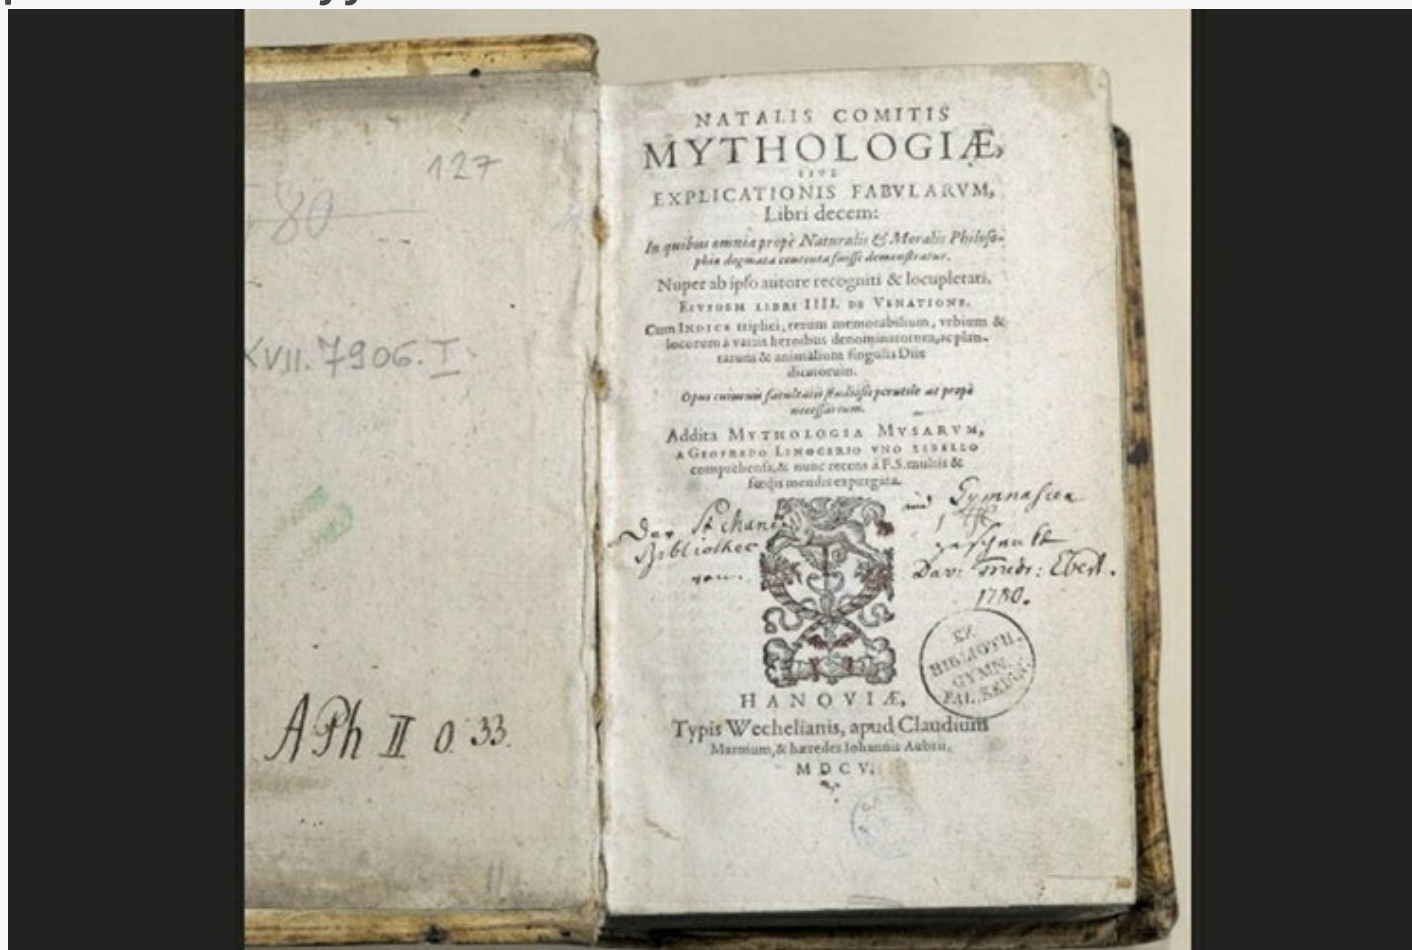 127
80
XVII. 7906. I
APh II 0. 33.
NATALIS COMITIS
MYTHOLOGIÆ,
SIVE
EXPLICATIONIS FABVLARVM,
Libri decem:
In quibus omnia propè Naturalis & Moralis Philoso-
phiæ dogmata contenta fuisse demonstratur.
Nuper ab ipso autore recogniti & locupletati.
EIVSDEM LIBRI IIII. DE VENATIONE.
Cum INDICE triplici, rerum memorabilium, vrbium &
locorum à variis heroibus denominatorum, ac plan-
tarum & animalium singulis Diis
dicatorum.
Opus cuiusuis facultatis studiosis perutile ac propè
necessarium.
Addita MYTHOLOGIA MVSARVM,
A GEOFREDO LINOCERIO VNO LIBELLO
comprehensa, & nunc recens à F.S. multis &
fœdis mendis expurgata.
Bibliothec
Gymnasien
geschenkt
Dav: Friedr: Ebert.
1780.
EX
BIBLIOTH.
GYMN.
HANOVIÆ,
Typis Wechelianis, apud Claudium
Marnium, & hæredes Iohannis Aubrii.
MDCV.